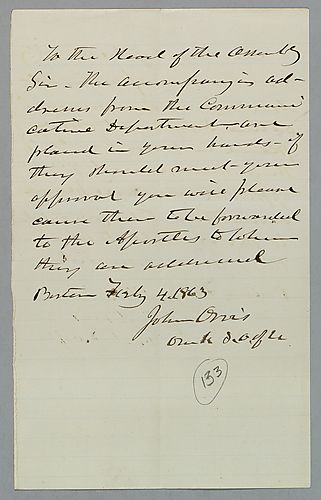 To the Head of the Assembly
Sir - the accompanying ad-
dresses from the Communi
cative Department are
placed in your hands - if
they should meet your
approval you will please
cause them to be forwarded
to the Apostles to whom
they are addressed
Boston Feby 4. 1863
John Orvis
133